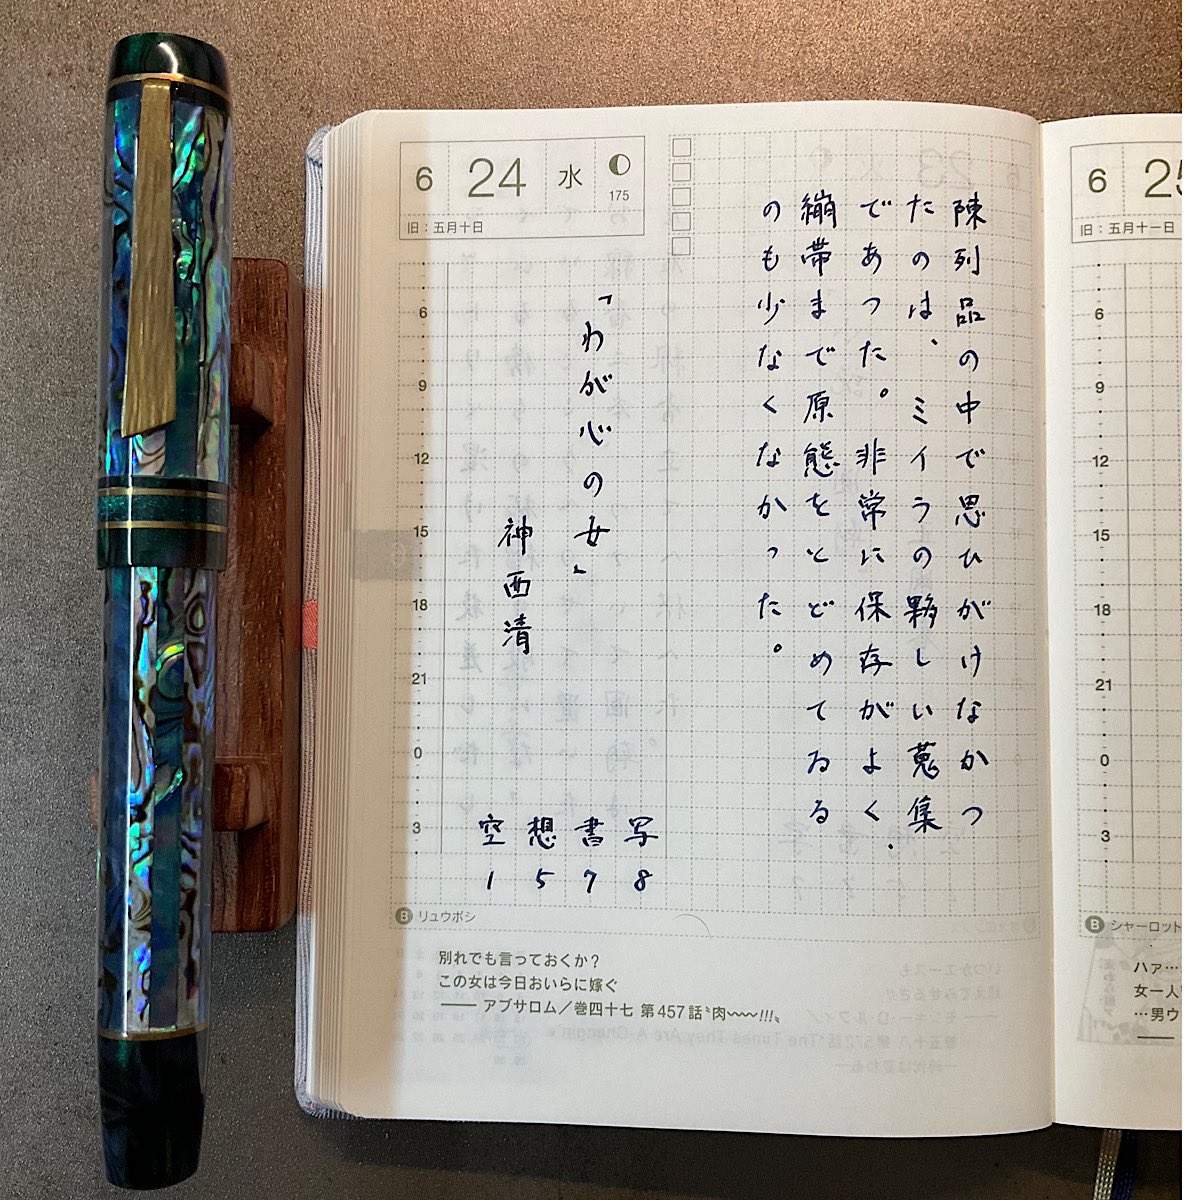 6 24 水
175
旧：五月十日
陳列品の中で思ひがけなかつ
たのは、ミイラの夥しい蒐集
であつた。非常に保存がよく、
繃帯まで原態をとどめてゐる
のも少なくなかった。
「わが心の女」
神西清
空想書写
1578
6
9
12
15
18
21
0
3
B リュウボシ
別れでも言っておくか？
この女は今日おいらに嫁ぐ
――― アブサロム／巻四十七 第457話〝肉〰〰!!!〟
6 25
旧：五月十一日
6
9
12
15
18
21
0
3
B シャーロット
ハァ…
女一人
…男ウ